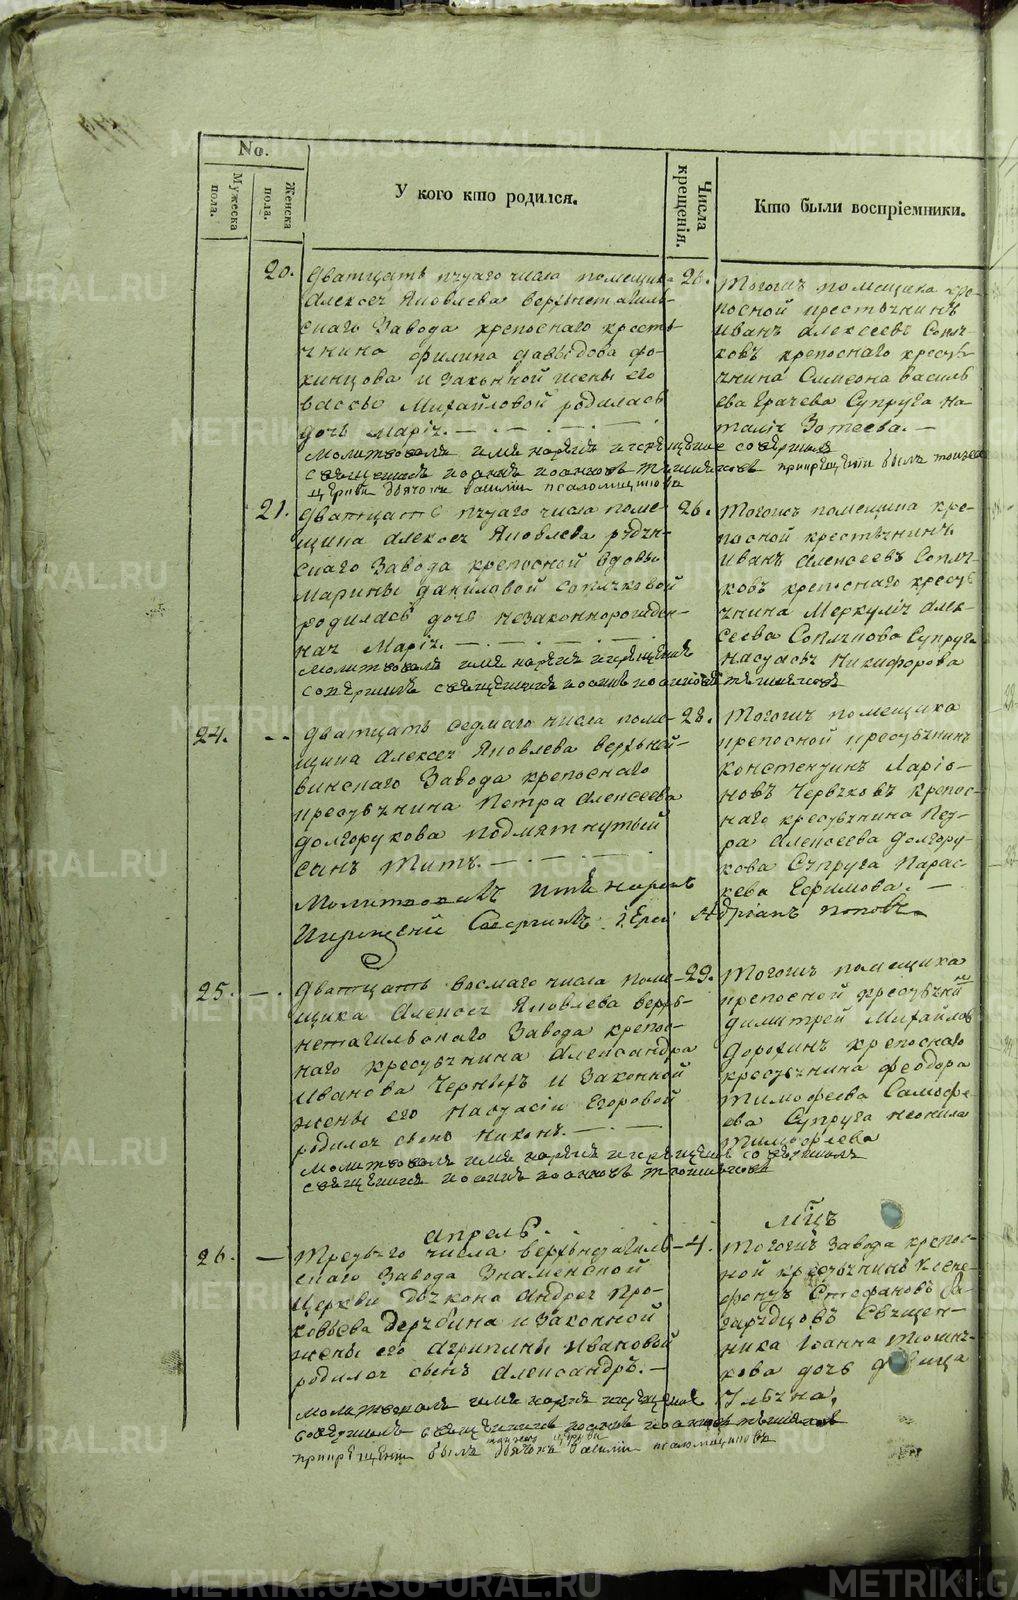 No.
Мужеска пола.
Женска пола.
У кого кто родился.
Числа крещенія.
Кто были воспріемники.
20.
Дватцать пятаго числа помещика
Алексея Яковлева верхнетагиль-
скаго Завода крепоснаго кресть
янина филипа давыдова фо-
кинцова и Законной жены его
вассы Михайловой родилась
дочь Марія.
Молитвовалъ имя нарекъ и крещеніе совершилъ
священникъ иоаннъ иоанновъ при крещеніи былъ тоя же
церкви дьячокъ василіи псаломщиковъ
26.
Тогожъ помещика кре-
посной крестянинъ
иванъ алексеевъ Сопля-
ковъ крепоснаго кресть
янина Симеона василь
ева Грачева Супруга на-
талія Зотеева.
21.
Дватцать пятаго числа поме-
щика алексея Яковлева рудян-
скаго Завода крепосной вдовы
Марины даниловой Сопляковой
родилась дочь незаконнорожден-
ная Марія.
Молитвовалъ имя нарекъ и крещеніе
совершилъ священникъ иоаннъ иоанновъ
26.
Тогожъ помещика кре-
посной крестьянинъ
иванъ Алексеевъ Сопля-
ковъ крепоснаго кресть
янина Меркулія Алек-
сеева Соплякова Супруга
Никифорова
24.
Дватцать седмаго числа поме-
щика Алексея Яковлева верхней-
винскаго Завода крепоснаго
крестьянина Петра Алексеева
долгорукова подмятнутый
сынъ Титъ.
Молитвовалъ Имя нарекъ
Икрещеніи Совершилъ Іерей Адріанъ поповъ
28.
Тогожъ помещика
крепосной крестьянинъ
константинъ Ларіо-
новъ Червяковъ крепос-
наго крестьянина Пет-
ра Алексеева Долгору-
кова Супруга Парас-
кева Ефимова.
25.
Дватцать восмаго числа поме-
щика Алексея Яковлева верх-
нетагильскаго Завода крепос-
наго крестьянина Александра
Иванова Черныхъ и Законной
жены его Настасіи Егоровой
родился сынъ Никонъ.
Молитвовалъ имя нарекъ и крещеніе совершилъ
священникъ иоаннъ иоанновъ
29.
Тогожъ помещика
крепосной крестьянин
димитрей Михайлов
Дорохинъ крепоснаго
крестьянина феодора
тимофеева Самофе-
ева Супруга неонила
тимофеева
апрель.
мцъ
26.
Третьяго числа верхнетагиль-
скаго Завода Знаменской
Церкви дьякона Андрея Про-
ковьева Дерябина и Законной
жены его Агрипины Ивановой
родился сынъ Александръ.
молитвовалъ имя нарекъ и крещеніе
совершилъ священникъ иоаннъ иоанновъ
при крещеніи былъ дьячокъ василіи псаломщиковъ
4.
Тогожъ Завода крепос-
ной крестьянинъ
Стефановъ
Священ-
ника Іоанна
дочь девица
Ульяна.
METRIKI.GASO-URAL.RU